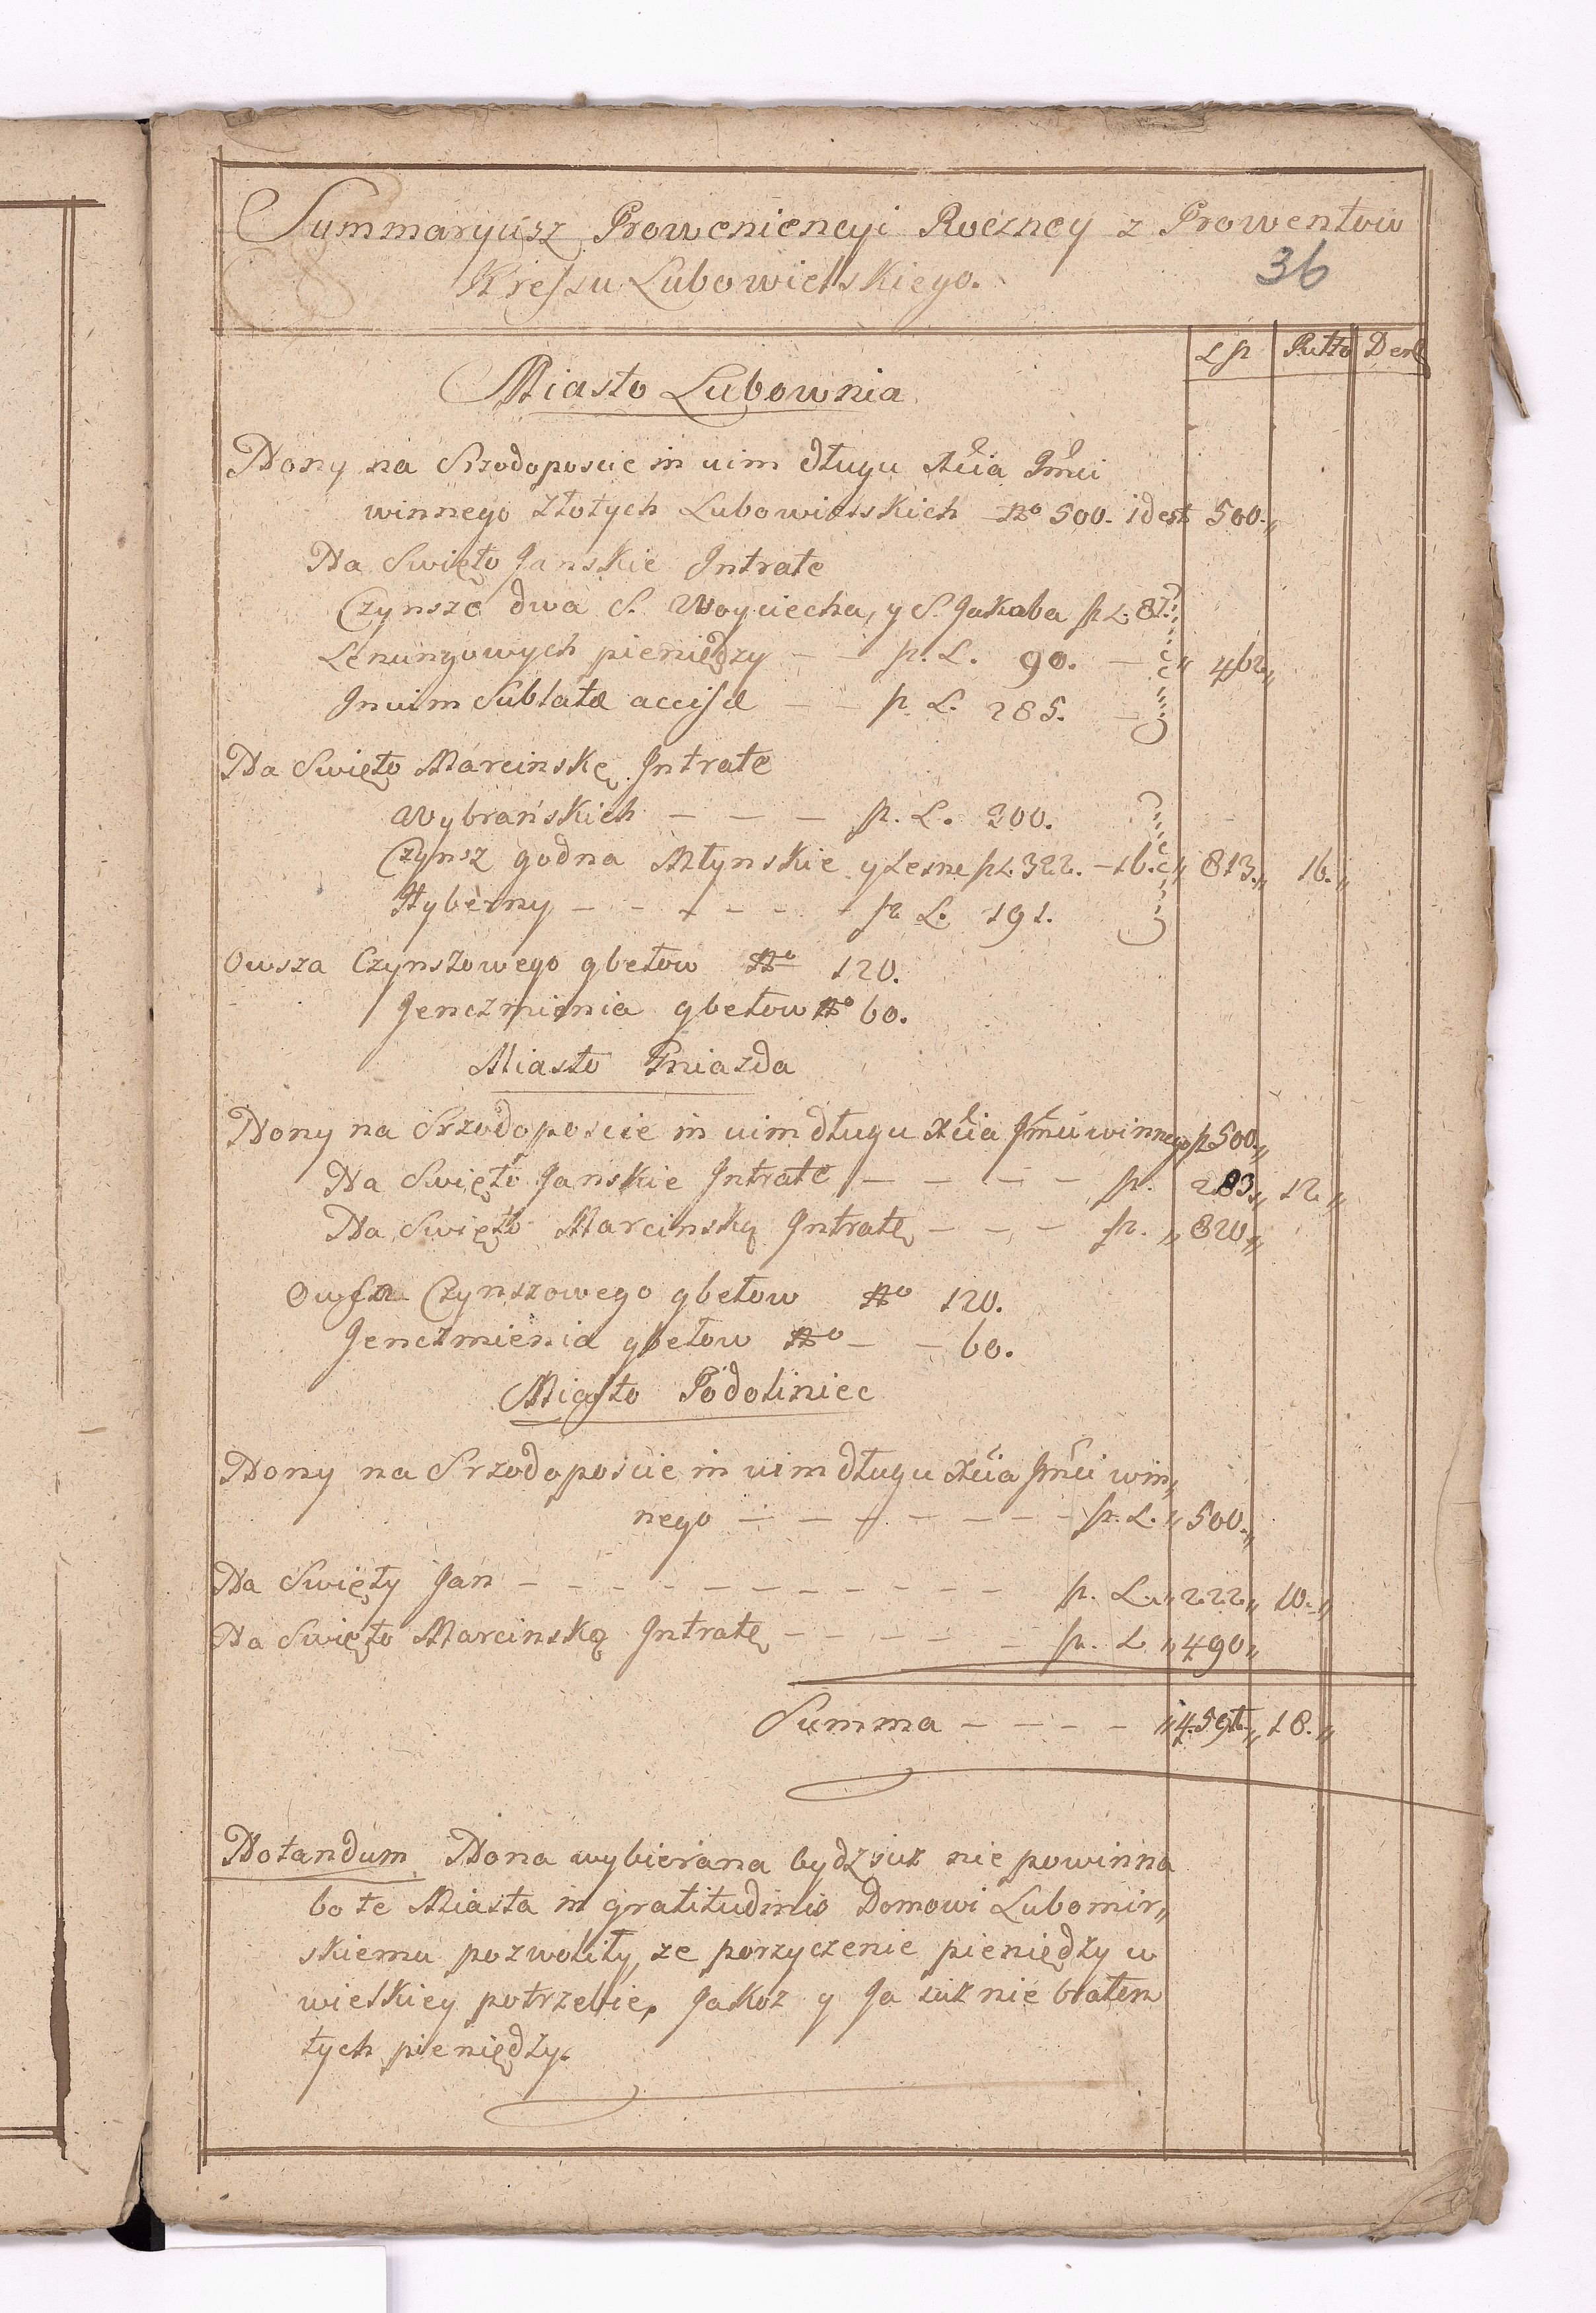 Summaryusz Proweniencyi Roczney z Prowentow
36
Kreſsu Lubowielskiego.
L p Putto Den
Miasto Lubownia
Nony na Srzodoposcie in uim długu Xcia Jmci
winnego Złotych Lubowielskich No 500. idest 500.„
Na Swięto Janskie Intrate
Czynsze dwa S. Woyciecha, y S. Jakuba p L. 87.
Lenungowych pieniędzy — — p. L. 90. — „ 462„
Inuim Sublatæ acciſæ — — p. L. 285. —
Na Swięto Marcinskę Intrate
Wybrańskich — — — p. L. 300.
Czynsz godna Młynskie y Lesne p L. 322. — 16. „ 813.„ 16.„
Hyberny — — — — — — p L. 191.
Owsza Czynszowego gbełow No 120.
Jenczmienia gbełow No 60.
Miasto Gniazda
Nony na Srzodoposcie in uim długu Xcia Jmci winnego p 500.„
Na Swięto Janskie Intrate — — — — p. 283„ 12„
Na Swięto Marcinską Intratę — — — p. „ 820„
Owſza Czynszowego gbełow No 120.
Jenczmienia gbełow No — — 60.
Miaſto Podoliniec
Nony na Srzodoposcie in uim długu Xcia Jmci win„
nego — — — — — — — — p. L. „ 500.„
Na Swięty Jan — — — — — — — — — — — p. L. „ 222„ 10.„
Na Swięto Marcinską Intratę — — — — — — p. L „ 490„
Summa — — — — „ 4.591„ 18.„
Notandum Nona wybierana bydz iuz nie powinna
bo te Miasta in gratitudinis Domowi Lubomir„
skiemu pozwoliły, ze porzyczenie pieniędzy w
wielkiey potrzebie, Jakoz y Ja iuz nie brałem
tych pieniędzy.